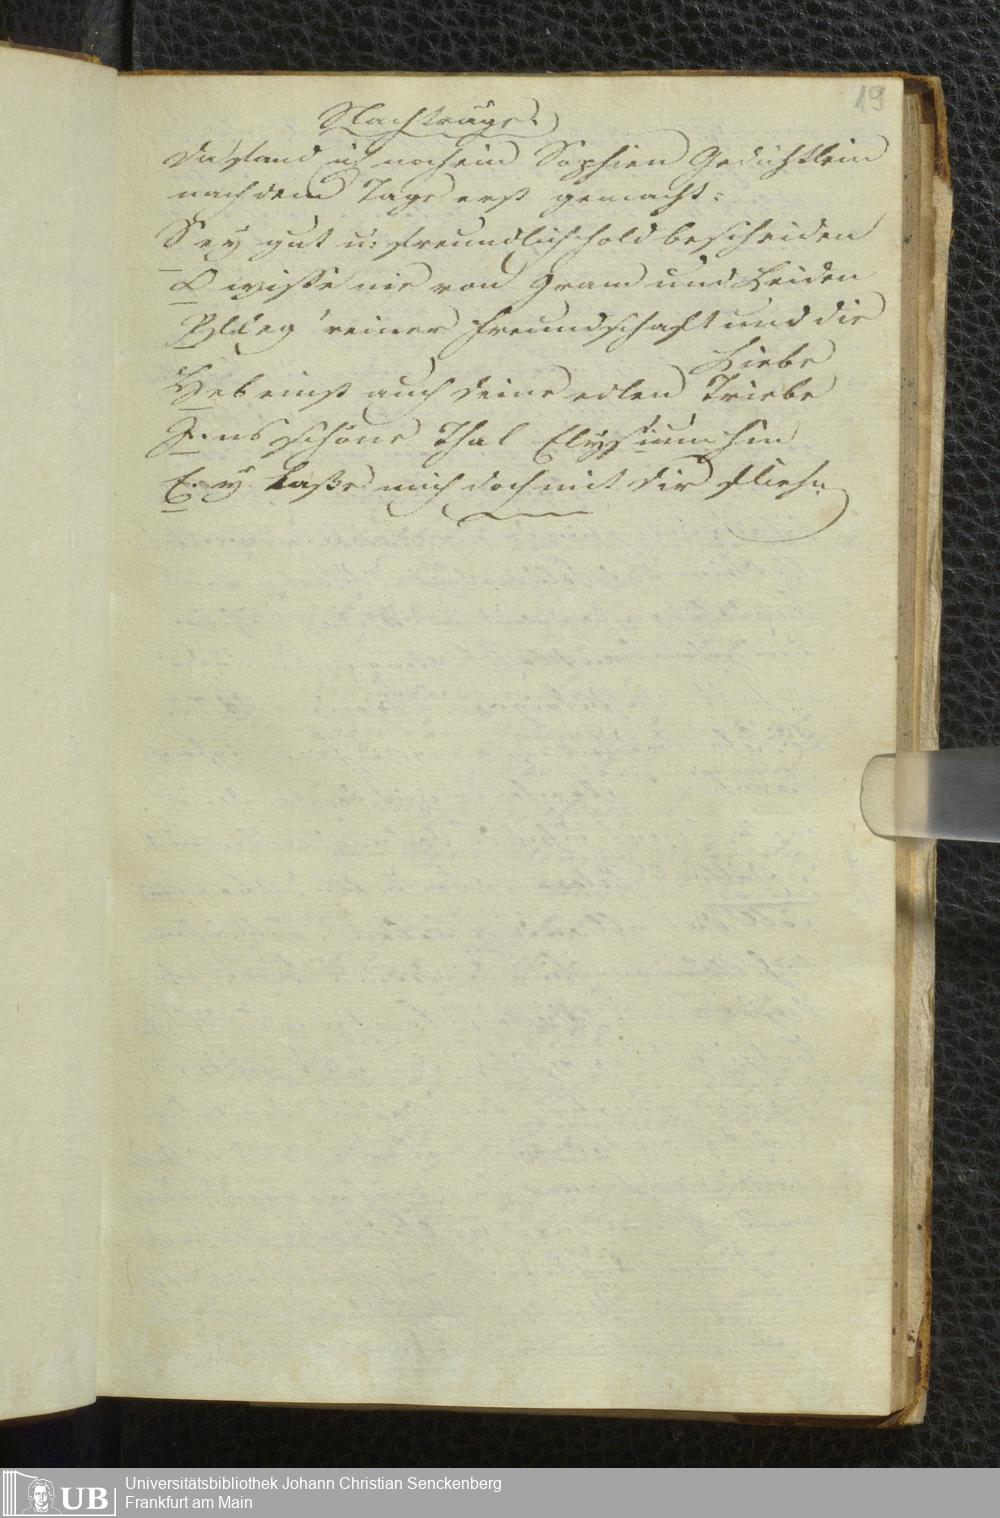 19
Nachtrag.
Da stand ich noch ein Sophien Gedichtlein
nach dem Tage erst gemacht:
Sey gut u: freundlich hold bescheiden
O wisse nie von Gram und Leiden
Pfleg' reiner Freundschaft und die
Liebe
Heb einst auch deine edlen Triebe
Ins schöne Thal Elysium hin
Ey Laße mich doch mit dir fliehn
UB
Universitätsbibliothek Johann Christian Senckenberg
Frankfurt am Main